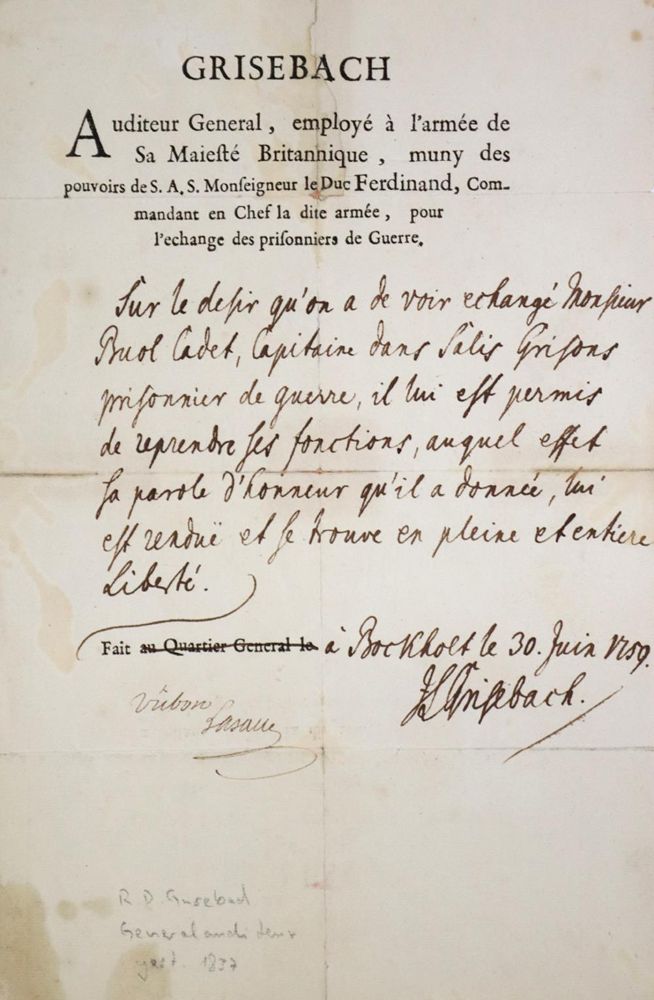 GRISEBACH
Auditeur General, employé à l'armée de
Sa Maiesté Britannique, muny des
pouvoirs de S. A. S. Monseigneur le Duc Ferdinand, Com-
mandant en Chef la dite armée, pour
l'echange des prisonniers de Guerre.
Sur le desir qu'on a de voir echangé Monsieur
Buol Cadet, Capitaine dans Salis Grisons
prisonnier de guerre, il lui est permis
de reprendre ses fonctions, auquel effet
sa parole d'honneur qu'il a donneé, lui
est renduë et se trouve en pleine et entiere
Liberté.
Fait au Quartier General le à Bockholt le 30. Juin 1759.
Grisebach.
Vübon
Lasalle
R. D. Grisebach
Generalauditeur
gest. 1837